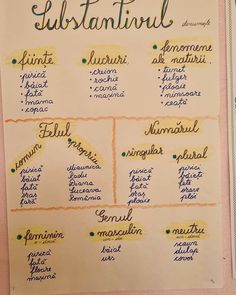 Substantivul
denumește
• ființe
pisică
băiat
fată
mama
copac
• lucruri
creion
rochie
cană
mașină
• fenomene
ale naturii
tunet
fulger
ploaie
ninsoare
ceață
Felul
• comun
pisică
băiat
fată
oraș
brad
• propriu
Radu
Diana
Suceava
România
Numărul
• singular
pisică
băiat
fată
oraș
ploaie
• plural
pisici
băieți
fete
orașe
ploi
Genul
• feminin
o - două
pisică
fată
floare
mașină
• masculin
un - doi
băiat
urs
• neutru
un - două
scaun
dulap
covor